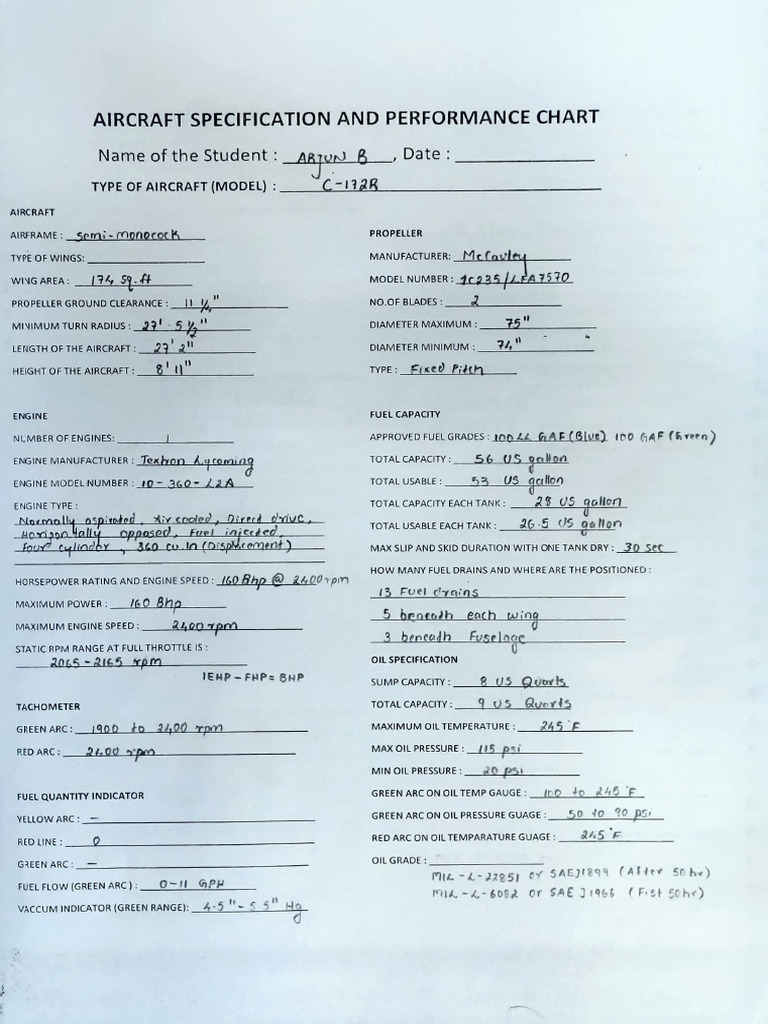 AIRCRAFT SPECIFICATION AND PERFORMANCE CHART
Name of the Student : ARJUN B , Date :
TYPE OF AIRCRAFT (MODEL) : C-172R
AIRCRAFT
AIRFRAME : Semi-monocock
TYPE OF WINGS:
WING AREA : 174 Sq.ft
PROPELLER GROUND CLEARANCE : 11 1/4"
MINIMUM TURN RADIUS : 27' - 5 1/2"
LENGTH OF THE AIRCRAFT : 27' 2"
HEIGHT OF THE AIRCRAFT : 8' 11"
PROPELLER
MANUFACTURER: McCauley
MODEL NUMBER : 1C235/LFA7570
NO.OF BLADES : 2
DIAMETER MAXIMUM : 75"
DIAMETER MINIMUM : 74"
TYPE : Fixed Pitch
ENGINE
NUMBER OF ENGINES: 1
ENGINE MANUFACTURER : Textron Lycoming
ENGINE MODEL NUMBER : IO-360-L2A
ENGINE TYPE :
Normally aspirated, Air cooled, Direct drive,
Horizontally opposed, Fuel injected,
Four cylinder, 360 cu In (Displacement)
HORSEPOWER RATING AND ENGINE SPEED : 160 Bhp @ 2400 rpm
MAXIMUM POWER : 160 Bhp
MAXIMUM ENGINE SPEED : 2400 rpm
STATIC RPM RANGE AT FULL THROTTLE IS :
2065-2165 rpm
IEHP-FHP = BHP
FUEL CAPACITY
APPROVED FUEL GRADES : 100 LL GAF (Blue) 100 GAF (Green)
TOTAL CAPACITY : 56 US gallon
TOTAL USABLE : 53 US gallon
TOTAL CAPACITY EACH TANK : 28 US gallon
TOTAL USABLE EACH TANK : 26.5 US gallon
MAX SLIP AND SKID DURATION WITH ONE TANK DRY : 30 sec
HOW MANY FUEL DRAINS AND WHERE ARE THE POSITIONED :
13 Fuel drains
5 beneath each wing
3 beneadh Fuselage
TACHOMETER
GREEN ARC : 1900 to 2400 rpm
RED ARC : 2400 rpm
OIL SPECIFICATION
SUMP CAPACITY : 8 US Quarts
TOTAL CAPACITY : 9 US Quorts
MAXIMUM OIL TEMPERATURE : 245°F
MAX OIL PRESSURE : 115 psi
MIN OIL PRESSURE : 20 psi
GREEN ARC ON OIL TEMP GAUGE : 100 to 245°F
GREEN ARC ON OIL PRESSURE GUAGE : 50 to 90 psi
RED ARC ON OIL TEMPARATURE GUAGE : 245°F
OIL GRADE :
MIL-L-22851 or SAEJ1899 (After 50 hr)
MIL-L-6082 or SAE J1966 (Fist 50hr)
FUEL QUANTITY INDICATOR
YELLOW ARC : –
RED LINE : 0
GREEN ARC : –
FUEL FLOW (GREEN ARC) : 0-11 GPH
VACCUM INDICATOR (GREEN RANGE): 4.5" - 5.5" Hg